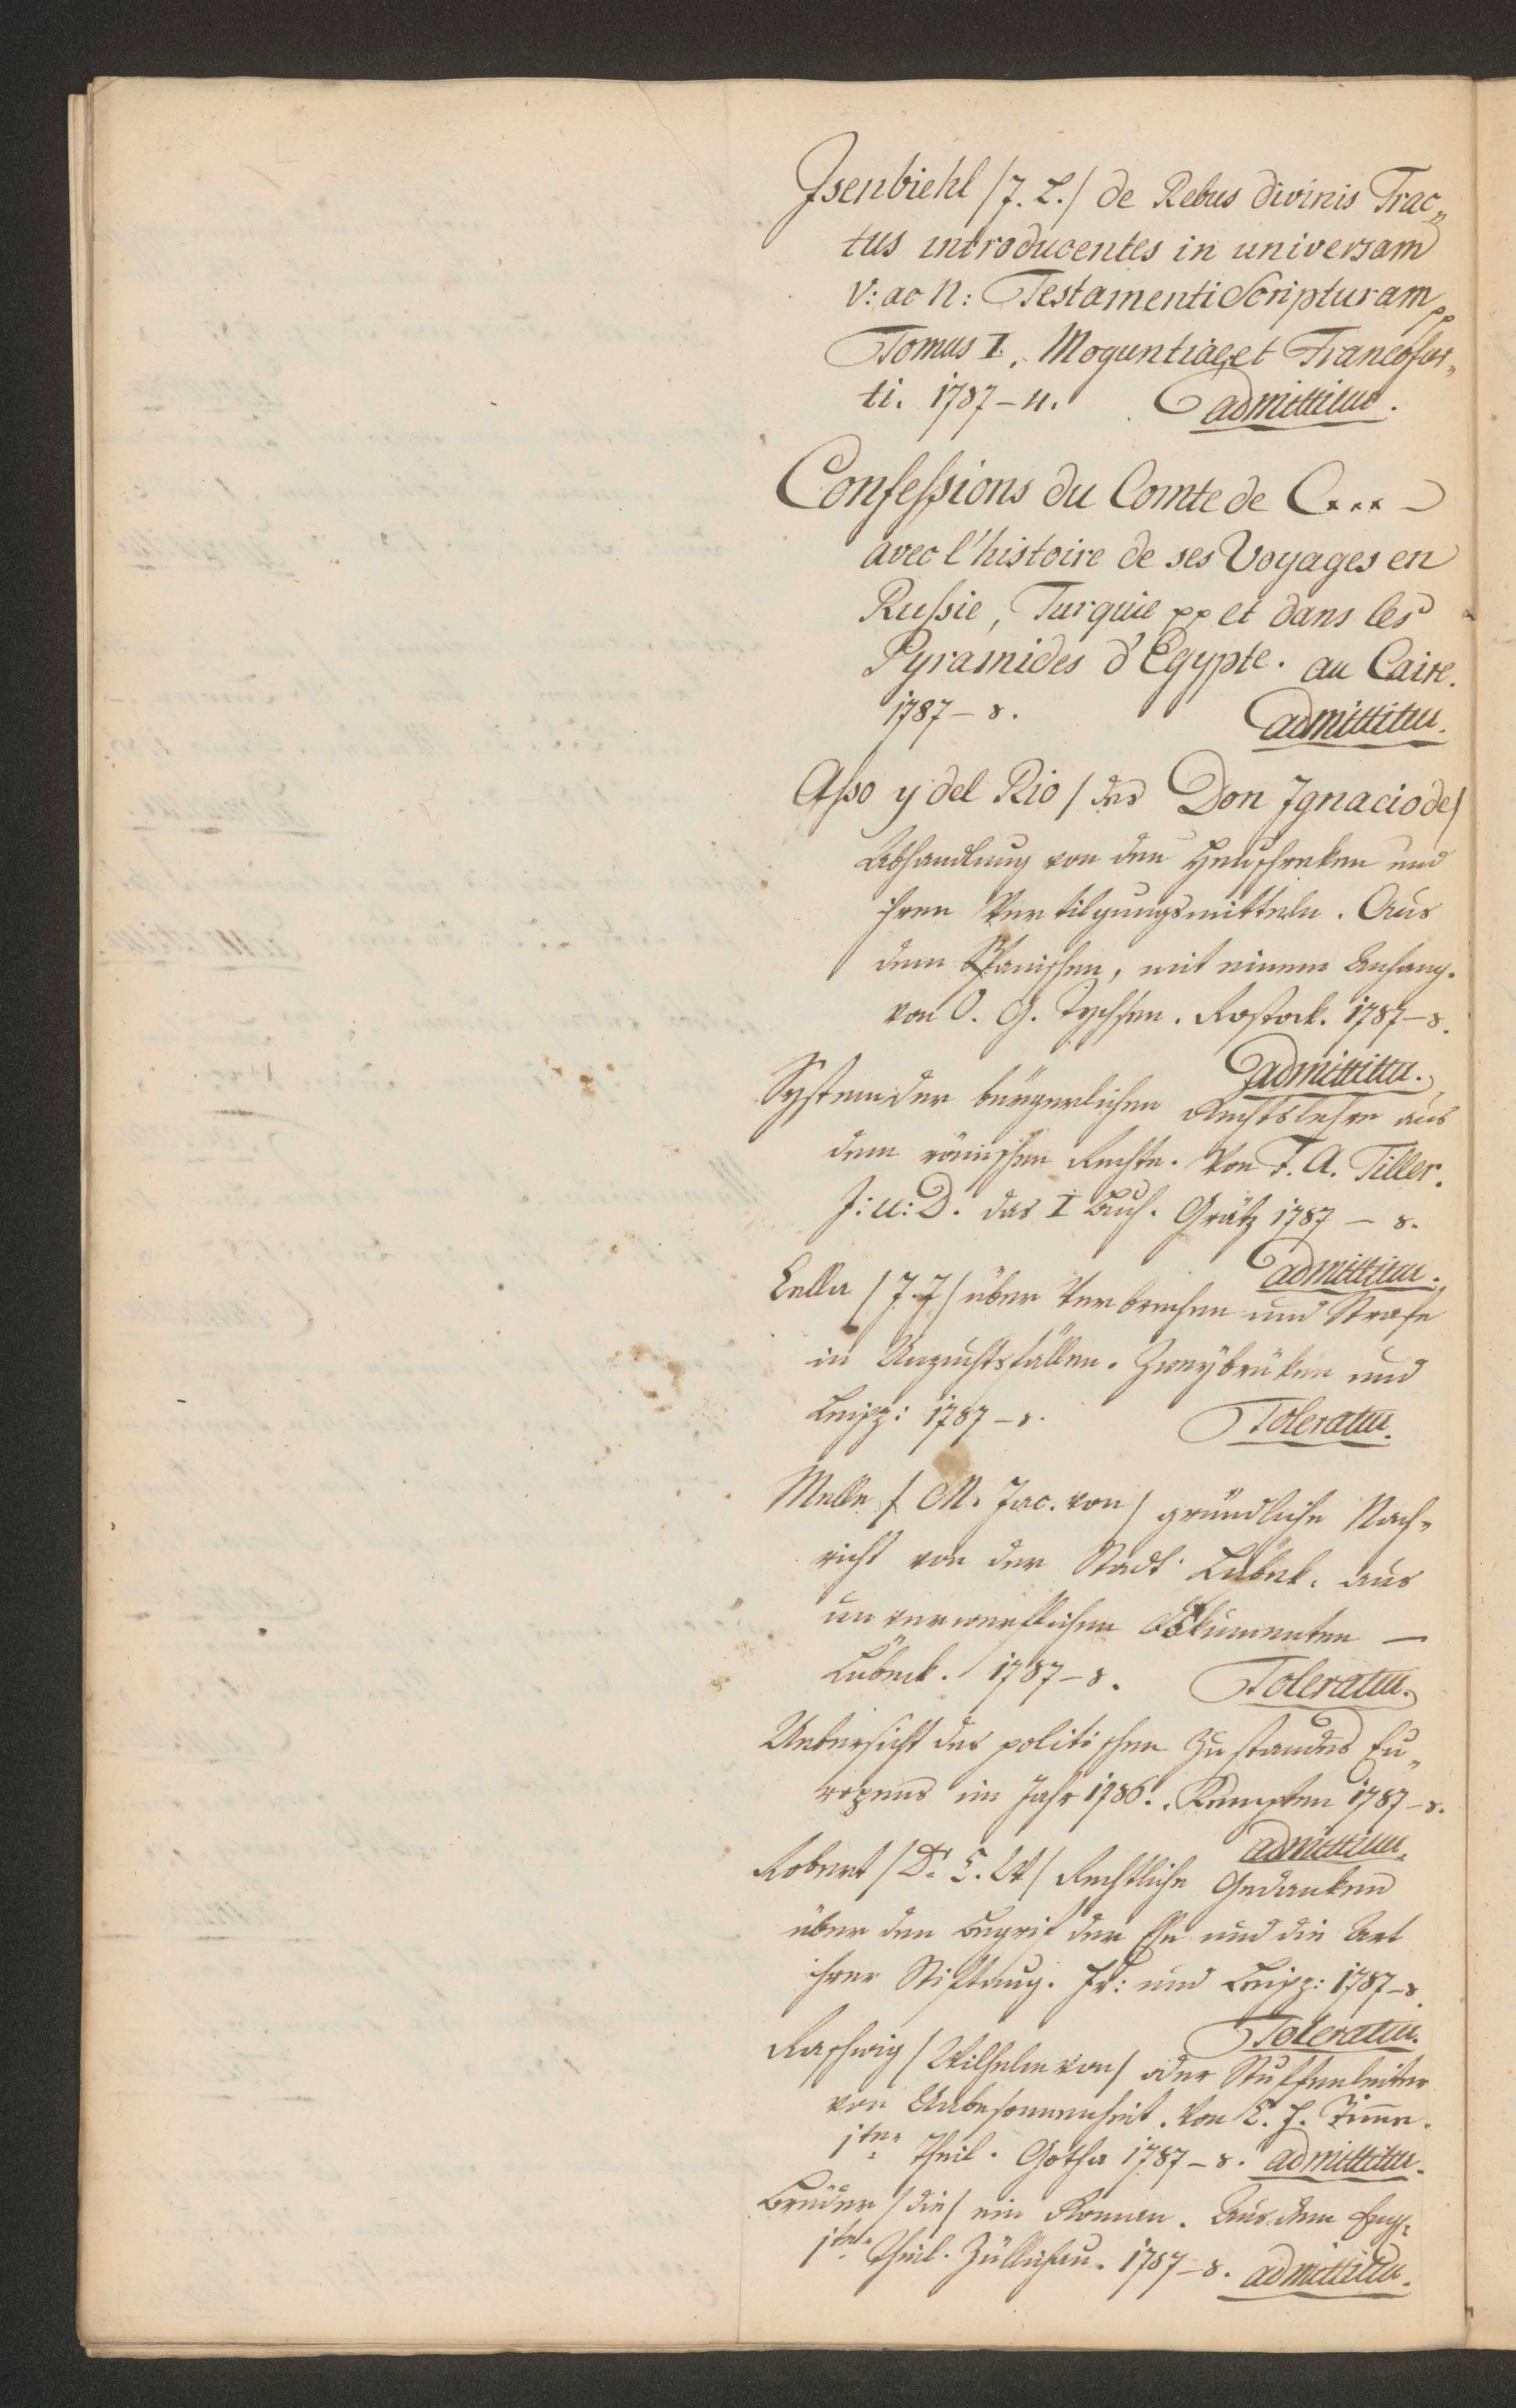 Isenbiehl /J. L./ de Rebus divinis Trac„
tus introducentes in universam
V: ac N: Testamenti Scripturam pp
Tomus I. Moguntiae, et Francofur„
ti. 1787–4. admittitur.
Confeſsions du Comte de C... –
avec l'histoire de ses Voyages en
Ruſsie, Turquie pp et dans les
Pyramides d'Egypte. au Caire.
1787–8. admittitur.
Aſso y del Rio / des Don Ignacio de/
Abhandlung von den Heuschreken und
ihren Vertilgungsmitteln. Aus
dem Spanischen, mit einem Anhang.
von O. G. Tychsen. Rostock. 1787–8.
admittitur.
System der bürgerlichen Rechtslehre aus
dem römischen Rechte. Von F. A. Tiller.
J: U: D. das I Buch. Grätz 1787 – 8.
admittitur.
Cella / J. J / über Verbrechen und Strafe
in Unzuchtsfällen. Zweybrüken und
Leipz: 1787–8. Toleratur.
Melle / M. Jac. von / gründliche Nach„
richt von der Stadt Lübek. aus
unverwerflichen Dokumenten –
Lübeck. 1787–8. Toleratur.
Uebersicht des politischen Zustandes Eu„
ropens im Jahr 1786. Kempten 1787–8.
admittitur.
Robert / Dr. C. W / Rechtliche Gedanken
über den Begrif der Ehe und die Art
ihrer Stiftung. Fr: und Leipz: 1787–8.
Toleratur.
Raschwig / Wilhelm von / oder Stuffenleiter
von Unbesonnenheit. Von C. H.
1ter Theil. Gotha 1787–8. admittitur.
Brüder / die / ein Roman. Aus dem Eng:
1ter Theil. Züllichau. 1787–8. admittitur.